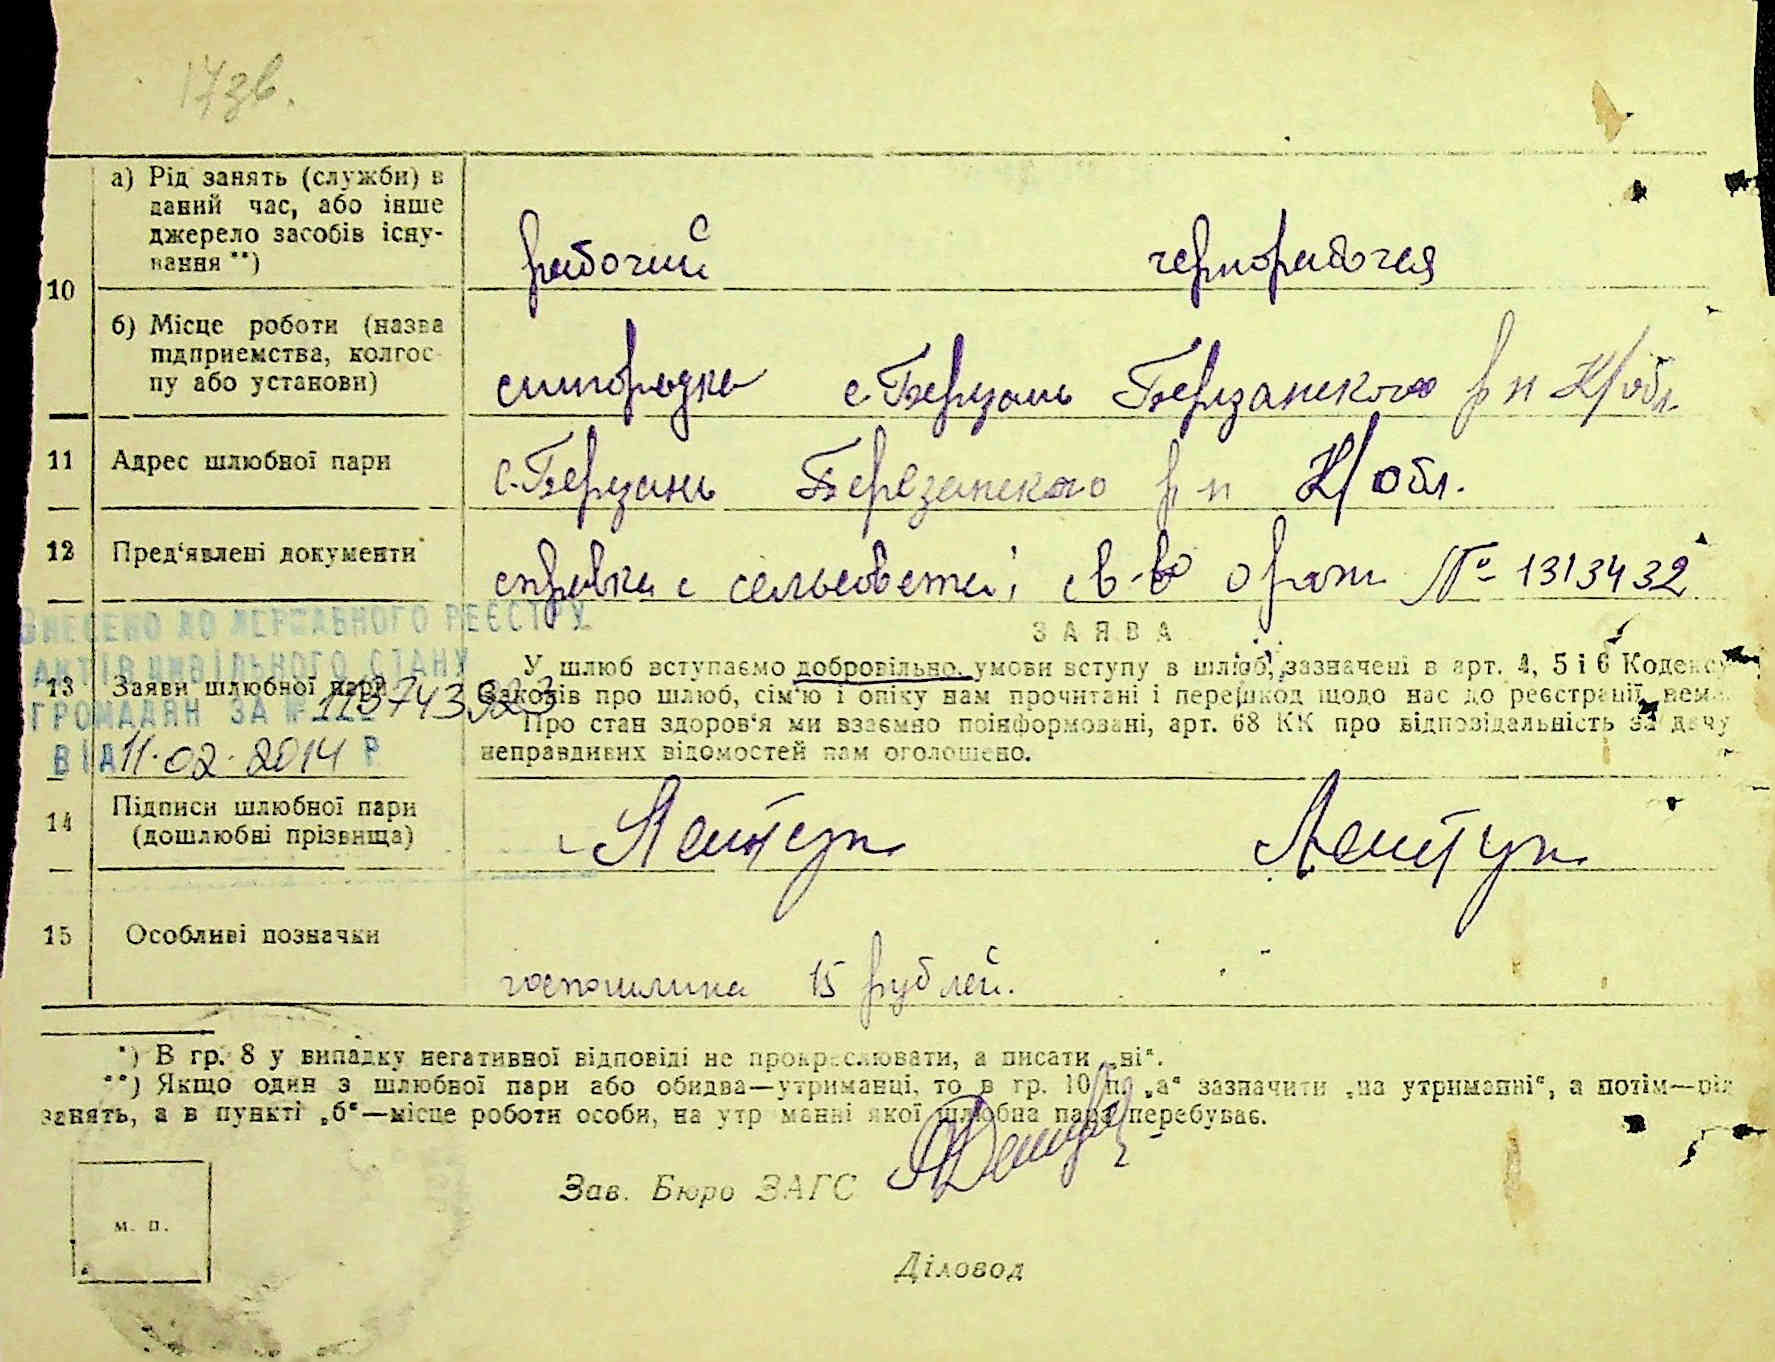 17зв.
а) Рід занять (служби) в
даний час, або інше
джерело засобів існу-
вання **)
рабочий чернорабочая
10
б) Місце роботи (назва
підприємства, колгос-
пу або установи)
с. Березань Березанского р н К/обл
11 Адрес шлюбної пари
с. Березань Березанского р-н К/обл.
12 Пред'явлені документи
справка с сельсовета; св-во о рожд № 1313432
ВНЕСЕНО ДО ДЕРЖАВНОГО РЕЄСТРУ
АКТІВ ЦИВІЛЬНОГО СТАНУ
ГРОМАДЯН ЗА №
ВІД 11.02.2014 Р
13 Заяви шлюбної пари
ЗАЯВА
У шлюб вступаємо добровільно. умови вступу в шлюб, зазначені в арт. 4, 5 і 6 Кодексу
Законів про шлюб, сім'ю і опіку нам прочитані і перешкод щодо нас до реєстрації нема.
Про стан здоров'я ми взаємно поінформовані, арт. 68 КК про відповідальність за дачу
неправдивих відомостей нам оголошено.
14 Підписи шлюбної пари
(дошлюбні прізвища)
15 Особливі позначки
госпошлина 15 рублей.
*) В гр. 8 у випадку негативної відповіді не прокреслювати, а писати „ні“.
**) Якщо один з шлюбної пари або обидва—утриманці, то в гр. 10 п. „а“ зазначити „на утриманні“, а потім—рід
занять, а в пункті „б“—місце роботи особи, на утриманні якої шлюбна пара перебуває.
Зав. Бюро ЗАГС
м. п.
Діловод